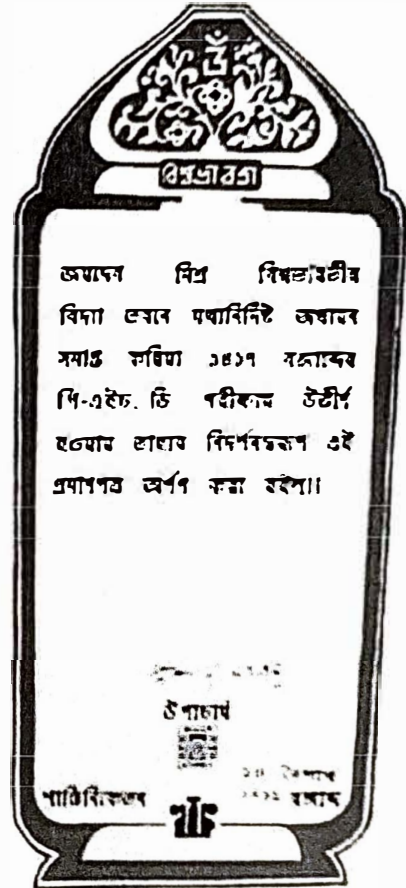 ওঁ
বিশ্বভারতী
জয়দেব মিশ্র বিশ্বভারতীর
বিদ্যা ভবনে যথানির্দিষ্ট অধ্যয়ন
সমাপ্ত করিয়া ১৪১৭ বঙ্গাব্দের
পি-এইচ. ডি পরীক্ষায় উত্তীর্ণ
হওয়ায় তাহার নিদর্শনস্বরূপ এই
প্রমাণপত্র অর্পণ করা হইল॥
উপাচার্য
বৈশাখ
শান্তিনিকেতন বঙ্গাব্দ